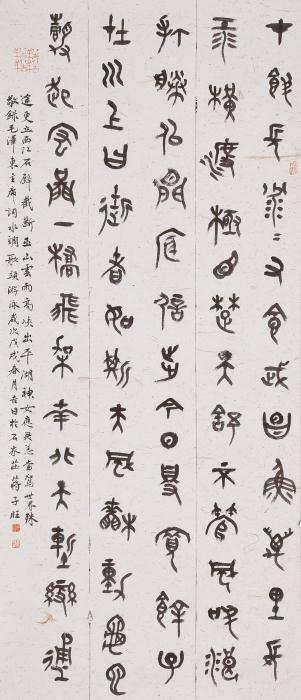 才飲長沙水又食武昌魚萬里長
江橫渡極目楚天舒不管風吹浪
打勝似閒庭信步今日得寬餘子
在川上曰逝者如斯夫風檣動龜蛇
靜起宏圖一橋飛架南北天塹變通
途更立西江石壁截斷巫山雲雨高峽出平湖神女應無恙當驚世界殊
敬錄毛澤東主席詞水調歌頭游泳歲次戊戌春月吉日於石家莊蔣子旺